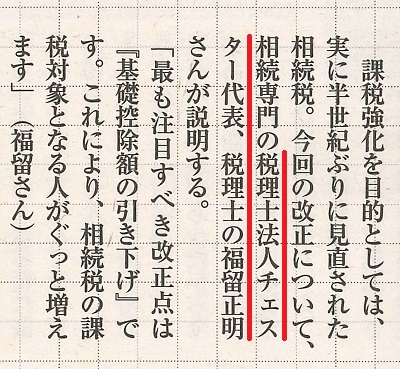 課税強化を目的としては、
実に半世紀ぶりに見直された
相続税。今回の改正について、
相続専門の税理士法人チェス
ター代表、税理士の福留正明
さんが説明する。
「最も注目すべき改正点は
『基礎控除額の引き下げ』で
す。これにより、相続税の課
税対象となる人がぐっと増え
ます」（福留さん）